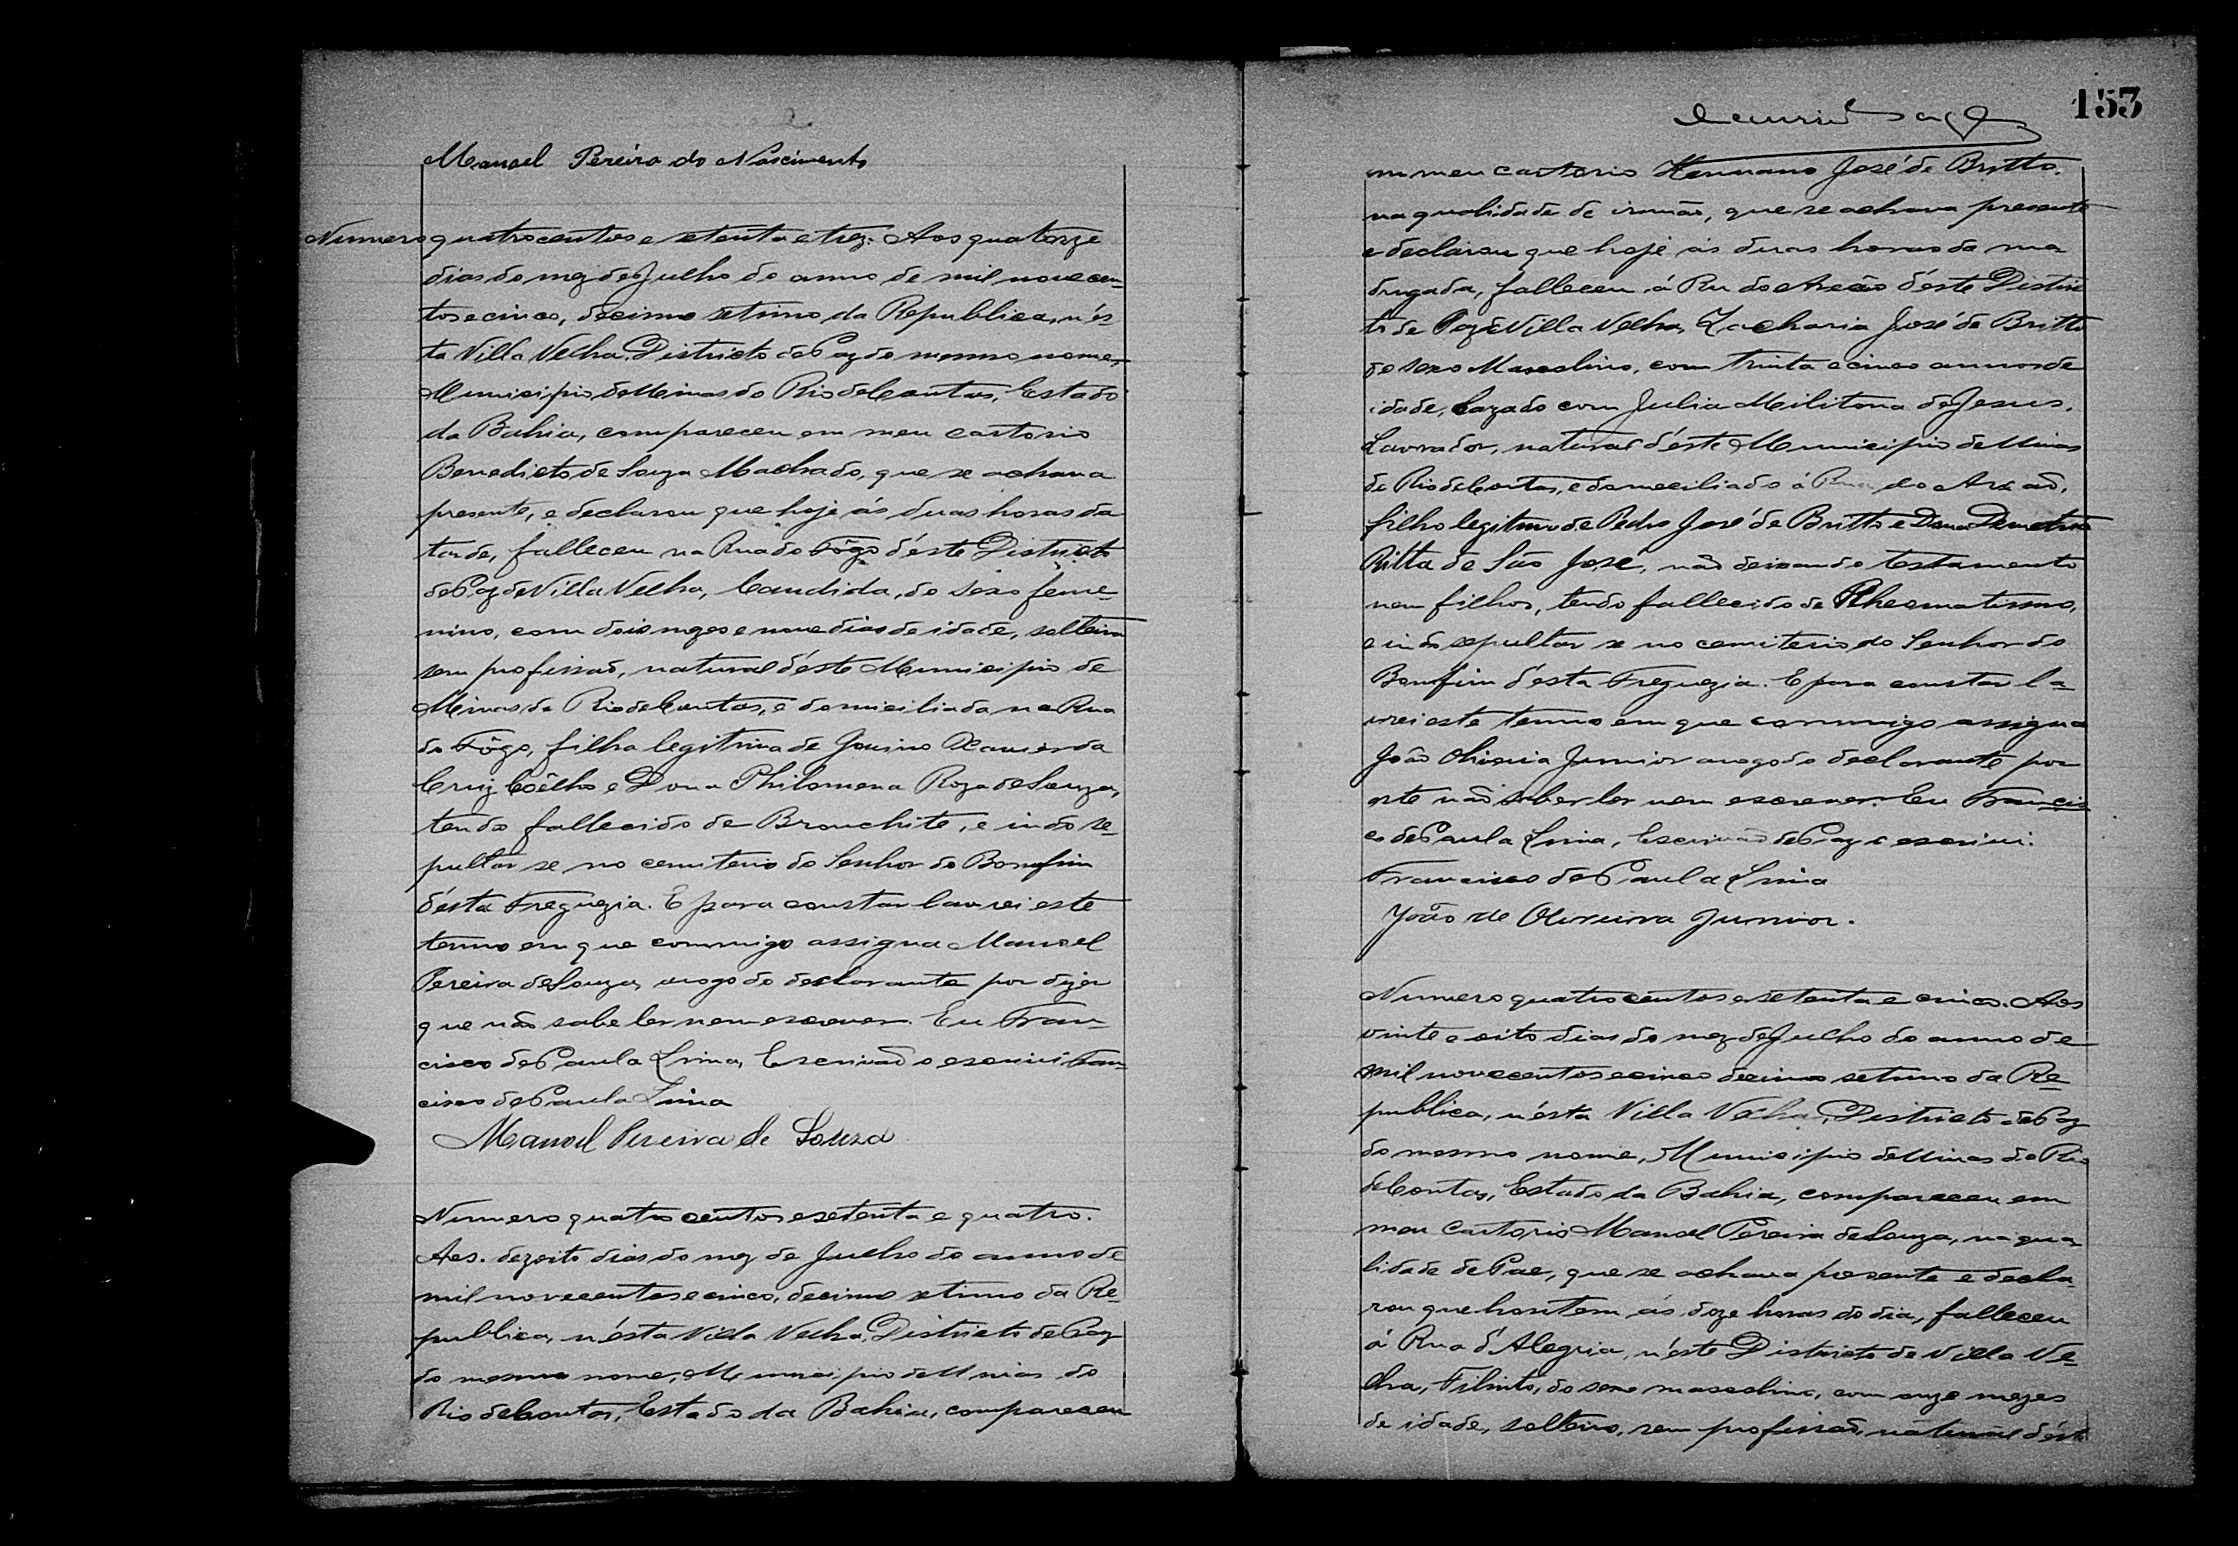 Manoel Pereira do Nascimento
Numero quatrocentos e setenta e trez. Aos quatorze
dias do mez de Julho do anno de mil novecen-
tos e cinco, decimo setimo da Republica, n'és-
ta Villa Velha, Districto de Paz do mesmo nome,
Municipio de Minas do Rio de Contas, Estado
da Bahia, compareceu em meu cartorio
Benedicto de Souza Machado, que se achava
presente, e declarou que hoje ás duas horas da
tarde, falleceu na Rua do Fôgo d'éste Districto
de Paz de Villa Velha, Candida, do sexo feme-
nino, com dois mezes e nove dias de idade, solteira
sem profissaõ, natural d'éste Municipio de
Minas do Rio de Contas, e domiciliada na Rua
do Fôgo, filha legitima de Jovino da
Cruz Coêlho e Dona Philomena Roza de Souza,
tendo fallecido de Bronchite, e indo se-
pultar se no cemiterio do Senhor do Bomfim
d'ésta Freguezia. E para constar lavrei este
termo em que commigo assigna Manoel
Pereira de Souza, arogo do declarante por dizer
que não sabe ler nem escrever. Eu Fran-
cisco de Paula Lima, Escrivaõ o escrivi Fran-
cisco de Paula Lima
Manoel Pereira de Souza
Numero quatro centos e setenta e quatro.
Aos. dezoito dias do mez de Julho do anno de
mil novecentos e cinco, decimo setimo da Re-
publica, n'ésta Villa Velha, Districto de Paz
do mesmo nome, Municipio de Minas do
Rio de Contas, Estado da Bahia, compareceu
153
em meu cartorio Hermano José de Britto,
na qualidade de irmão, que se achava presente
e declarou que hoje ás duas horas da ma-
drugada, falleceu á Ru do Areão d'éste Distric
to de Paz de Villa Velha, Zacharia José de Britto
do sexo Masculino, com trinta e cinco annos de
idade, Cazado com Julia Militona de Jesus,
Lavrador, natural d'éste Municipio de Minas
do Rio de Contas, e domeciliado á Rua do Areaõ,
filho legitimo de Pedro José de Britto e Dona Demetria
Ritta de São José, não deixando testamento
nem filhos, tendo fallecido de Rheomatismo,
e indo sepultar se no cemiterio do Senhor do
Bomfim d'ésta Freguezia. E para constar la-
vrei este termo em que commigo assigna
João Oliveira Junior arogo do declarante por
este não saber ler nem escrever. Eu Francis
co de Paula Lima, Escrivaõ de Paz o escrivi.
Francisco de Paula Lima
João de Oliveira Junior.
Numero quatro centos e setenta e cinco. Aos
vinte e oito dias do mez de Julho do anno de
mil novecentos e cinco decimo setimo da Re-
publica, n'ésta Villa Velha, Districto de Paz
do mesmo nome, Municipio de Minas do Rio
de Contas, Estado da Bahia, compareceu em
meu Cartorio Manoel Pereira de Souza, na qua-
lidade de Pae, que se achava presente e decla-
rou que hontem ás doze horas do dia, falleceu
á Rua d'Alegria, n'éste Districto de Villa Ve-
lha, Filinto, do sexo masculino, com onze mezes
de idade, solteiro, sem profissaõ, natural d'éste